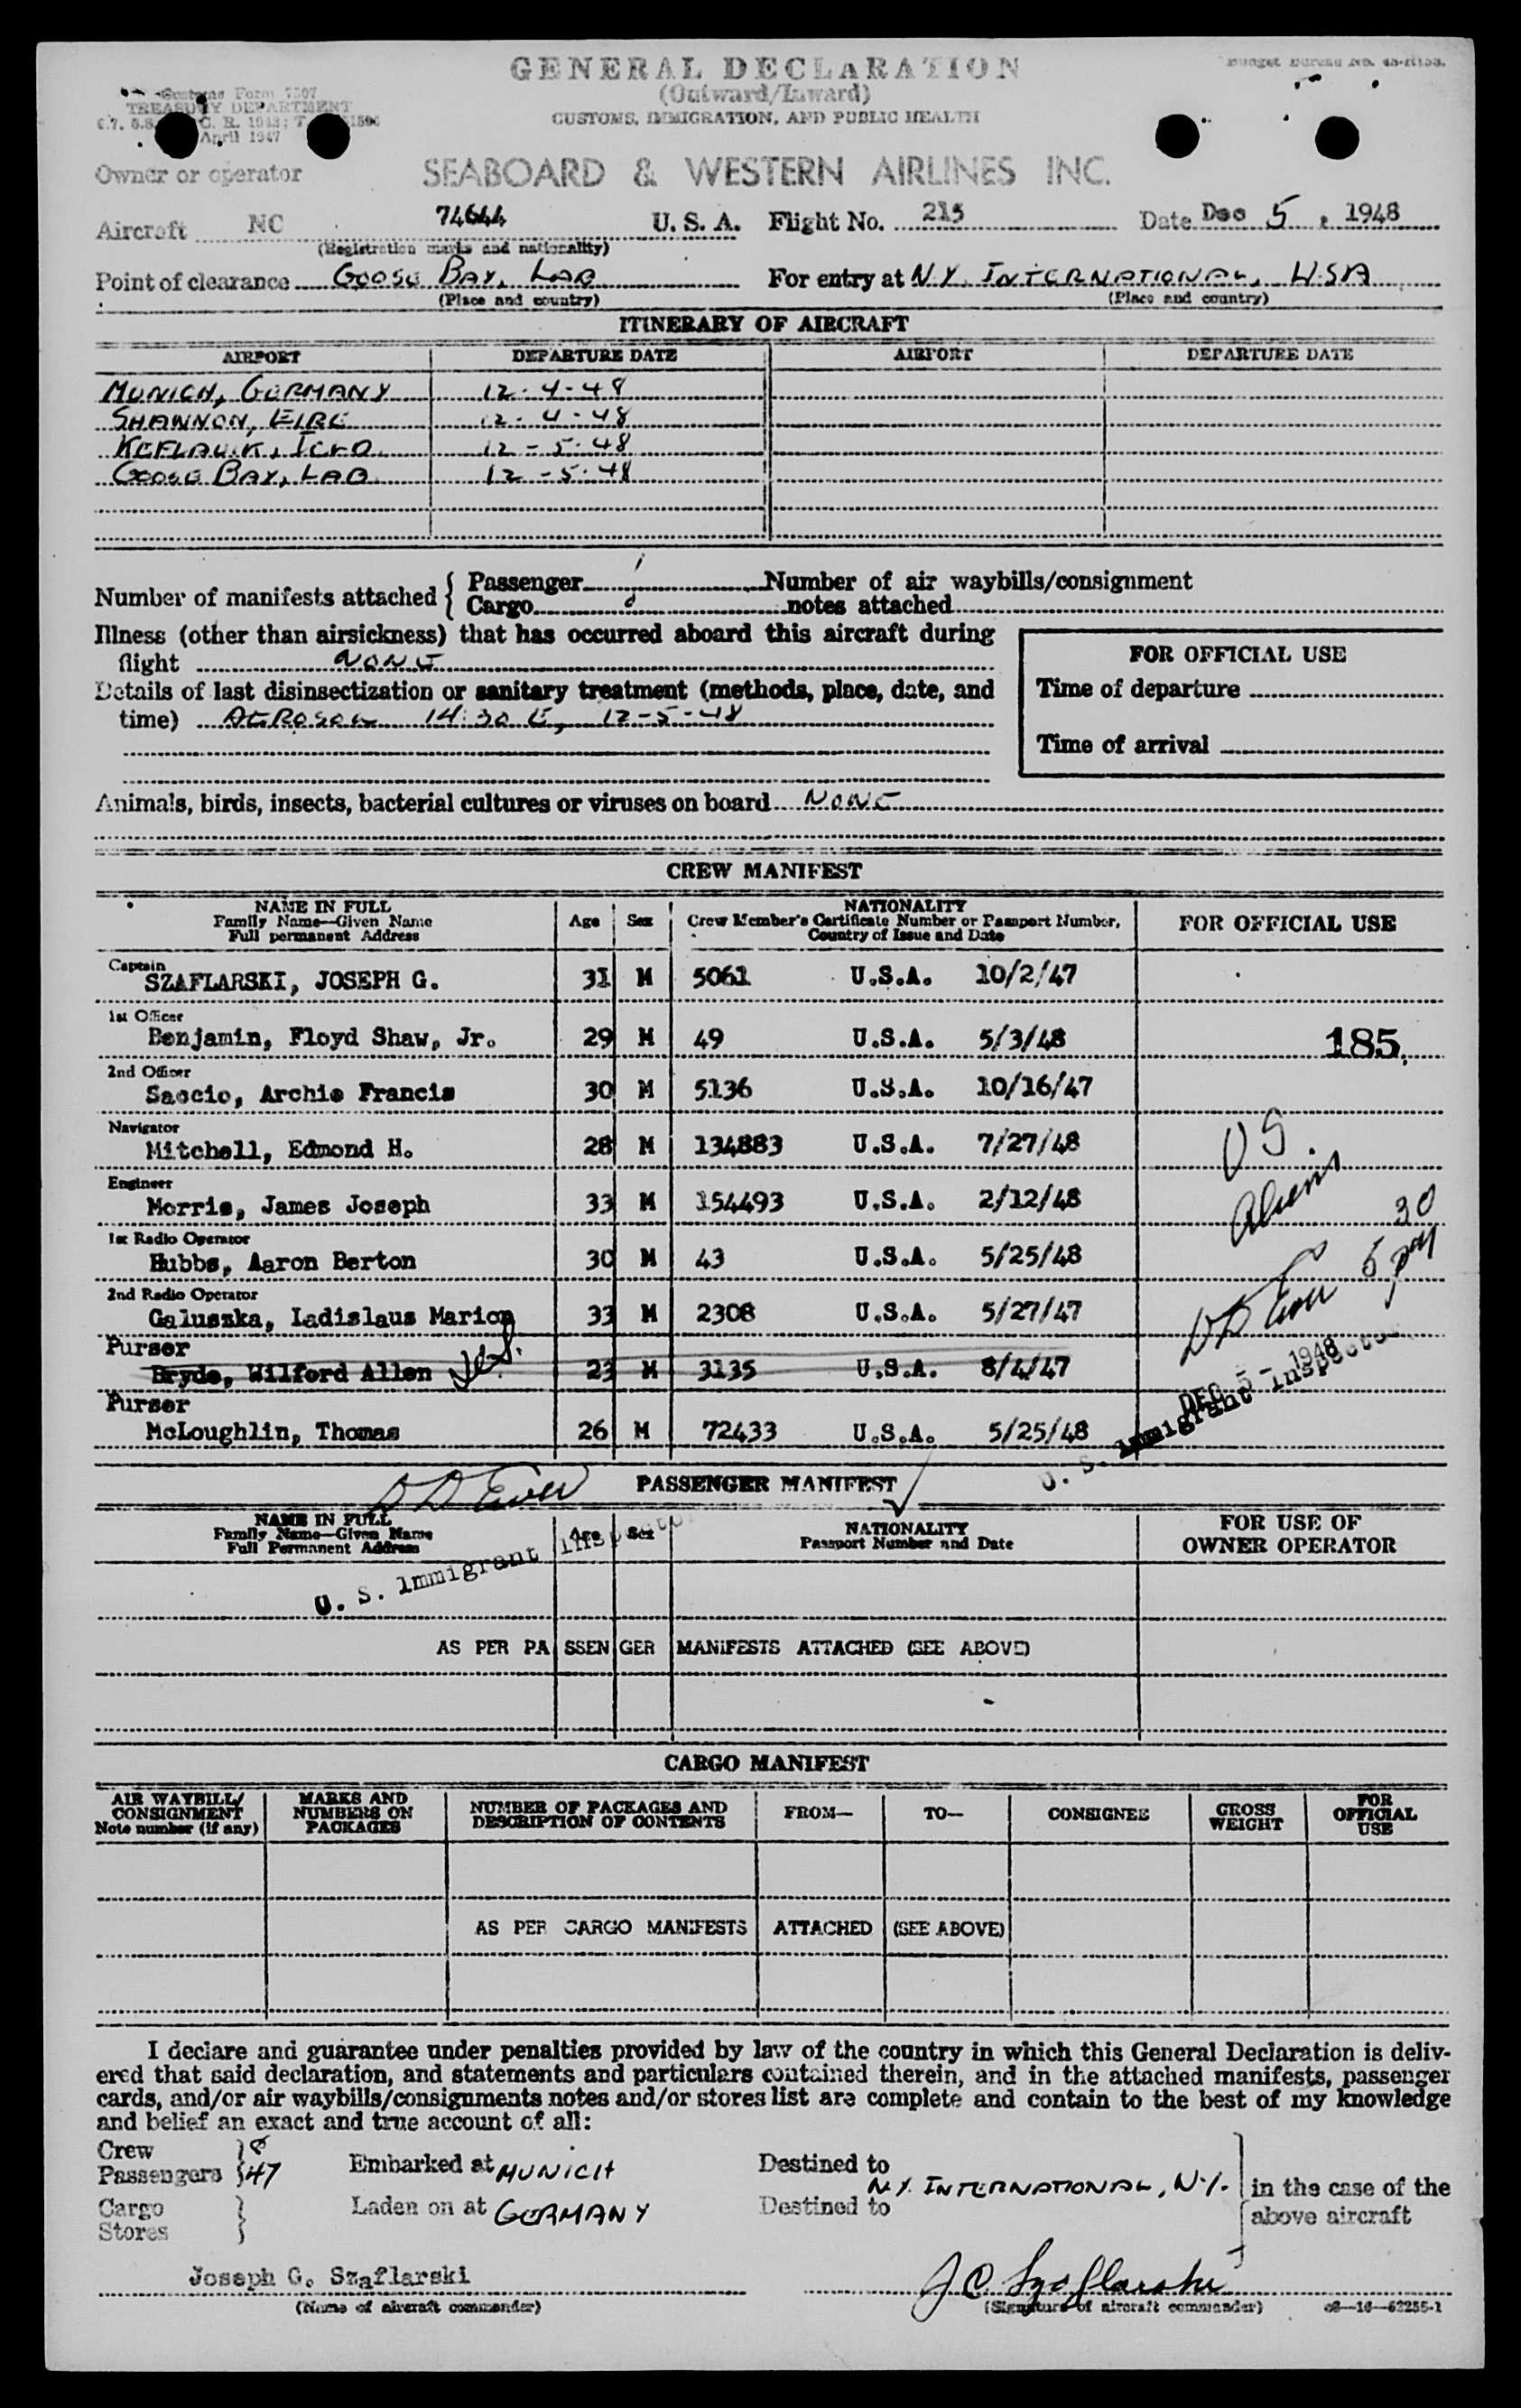 GENERAL DECLARATION
(Outward/Inward)
CUSTOMS, IMMIGRATION, AND PUBLIC HEALTH
Customs Form 7507
TREASURY DEPARTMENT
April 1947
Owner or operator SEABOARD & WESTERN AIRLINES INC.
Aircraft NC 74644 U. S. A. Flight No. 215 Date Dec 5, 1948
(Registration marks and nationality)
Point of clearance GOOSE BAY, LAB For entry at N.Y. INTERNATIONAL, USA
(Place and country) (Place and country)
ITINERARY OF AIRCRAFT
AIRPORT DEPARTURE DATE AIRPORT DEPARTURE DATE
MUNICH, GERMANY 12-4-48
SHANNON, EIRE 12-4-48
KEFLAVIK, ICLD 12-5-48
GOOSE BAY, LAB 12-5-48
Number of manifests attached { Passenger 1 Number of air waybills/consignment
Cargo notes attached
Illness (other than airsickness) that has occurred aboard this aircraft during
flight NONE
FOR OFFICIAL USE
Details of last disinsectization or sanitary treatment (methods, place, date, and
time) AEROSOL 14:30 12-5-48
Time of departure
Time of arrival
Animals, birds, insects, bacterial cultures or viruses on board NONE
CREW MANIFEST
NAME IN FULL
Family Name—Given Name
Full permanent Address
Age Sex
NATIONALITY
Crew Member's Certificate Number or Passport Number,
Country of Issue and Date
FOR OFFICIAL USE
Captain
SZAFLARSKI, JOSEPH G. 31 M 5061 U.S.A. 10/2/47
1st Officer
Benjamin, Floyd Shaw, Jr. 29 M 49 U.S.A. 5/3/48 185
2nd Officer
Saccio, Archie Francis 30 M 5136 U.S.A. 10/16/47
Navigator
Mitchell, Edmond H. 28 M 134883 U.S.A. 7/27/48 US
Engineer
Morris, James Joseph 33 M 154493 U.S.A. 2/12/48 Aliens 30
1st Radio Operator
Hubbs, Aaron Berton 30 M 43 U.S.A. 5/25/48
2nd Radio Operator
Galuszka, Ladislaus Marion 33 M 2308 U.S.A. 5/27/47
Purser
Bryde, Wilford Allen JGS. 23 M 3135 U.S.A. 8/4/47
DEC 5 - 1948
Purser
McLoughlin, Thomas 26 M 72433 U.S.A. 5/25/48
U. S. Immigrant Inspector
PASSENGER MANIFEST
NAME IN FULL
Family Name—Given Name
Full Permanent Address
Age Sex
NATIONALITY
Passport Number and Date
FOR USE OF
OWNER OPERATOR
U. S. Immigrant Inspector
AS PER PASSENGER MANIFESTS ATTACHED (SEE ABOVE)
CARGO MANIFEST
AIR WAYBILL/
CONSIGNMENT
Note number (if any)
MARKS AND
NUMBERS ON
PACKAGES
NUMBER OF PACKAGES AND
DESCRIPTION OF CONTENTS
FROM— TO— CONSIGNEE
GROSS
WEIGHT
FOR
OFFICIAL
USE
AS PER CARGO MANIFESTS ATTACHED (SEE ABOVE)
I declare and guarantee under penalties provided by law of the country in which this General Declaration is deliv-
ered that said declaration, and statements and particulars contained therein, and in the attached manifests, passenger
cards, and/or air waybills/consignments notes and/or stores list are complete and contain to the best of my knowledge
and belief an exact and true account of all:
Crew 8
Passengers 47 Embarked at MUNICH Destined to N.Y. INTERNATIONAL, N.Y. in the case of the
Cargo Laden on at GERMANY Destined to above aircraft
Stores
Joseph G. Szaflarski J G Szaflarski
(Name of aircraft commander) (Signature of aircraft commander) 16—52255-1